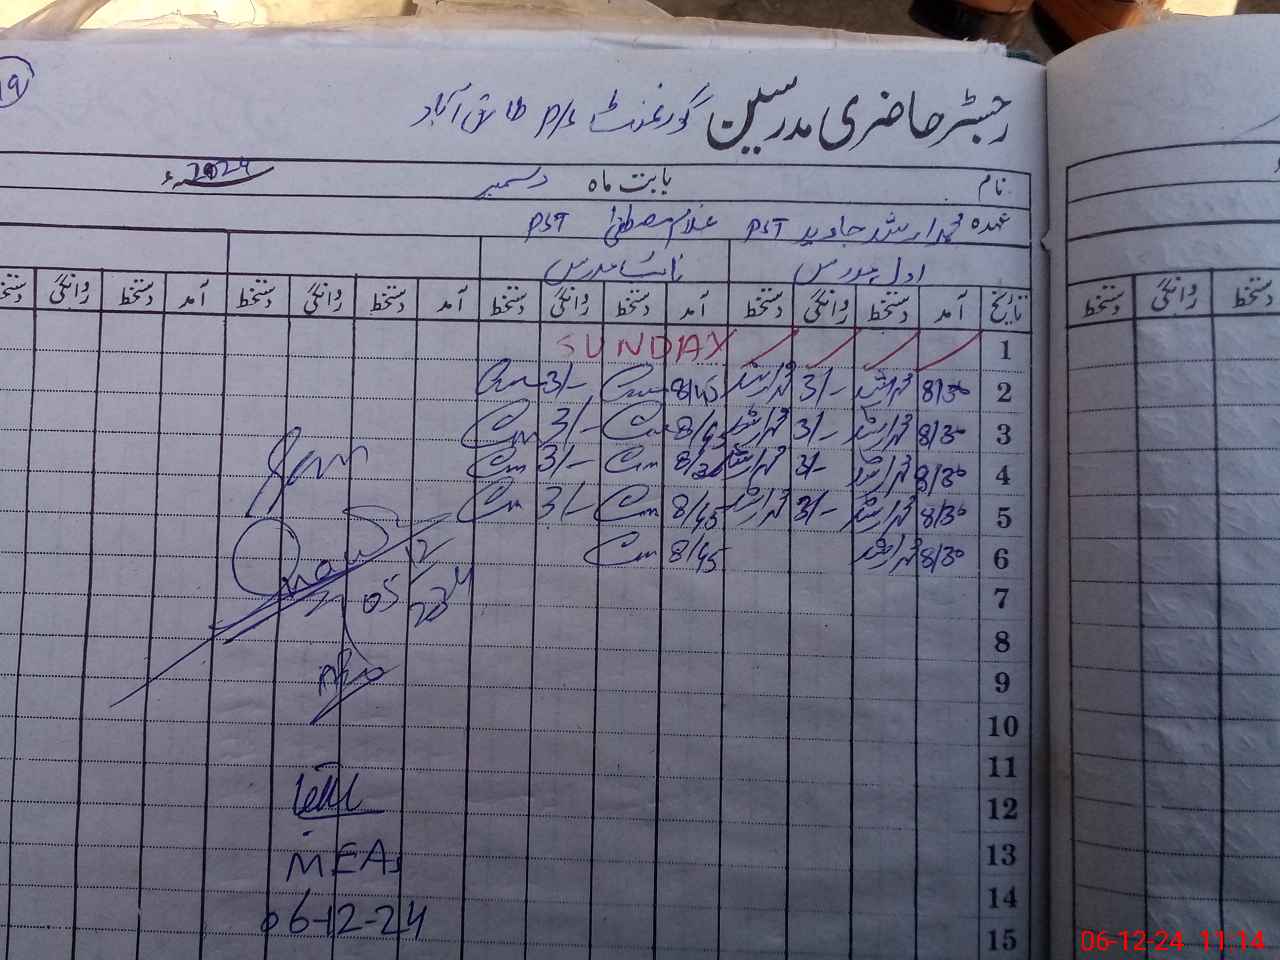 19
رجسٹر حاضری مدرسین گورنمنٹ P/S طارق آباد
نام بابت ماہ دسمبر 2024ء
عہدہ محمد ارشد جاوید PST غلام مصطفیٰ PST
اول مدرس نائب مدرس
تاریخ آمد دستخط روانگی دستخط آمد دستخط روانگی دستخط آمد دستخط روانگی دستخط آمد دستخط روانگی دستخط
1 SUNDAY
2 8/30 محمد ارشد 3/- محمد ارشد 8/45 3/-
3 8/30 محمد ارشد 3/- محمد ارشد 8/45 3/-
4 8/30 محمد ارشد 3/- محمد ارشد 8/30 3/-
5 8/30 محمد ارشد 3/- محمد ارشد 8/45 3/-
6 8/30 محمد ارشد 8/45
7
8
9
10
11
12
13
14
15
05
12
MEAs
06-12-24
دستخط روانگی دستخط
06-12-24 11:14